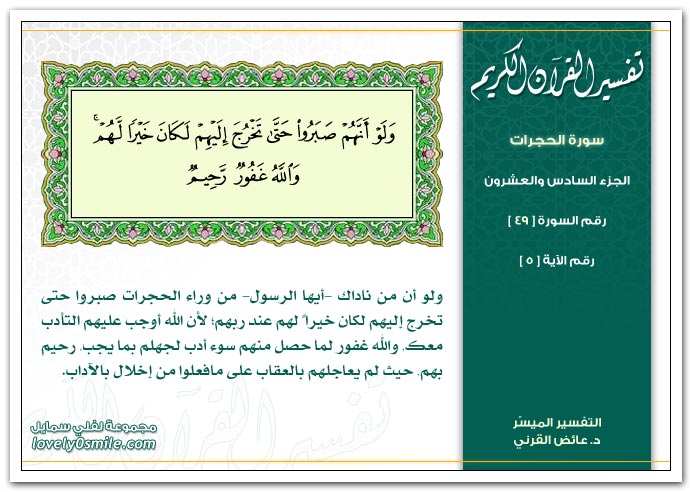 تفسير القرآن الكريم
سورة الحجرات
الجزء السادس والعشرون
رقم السورة [ ٤٩ ]
رقم الآية [ ٥ ]
وَلَوۡ أَنَّهُمۡ صَبَرُواْ حَتَّىٰ تَخۡرُجَ إِلَيۡهِمۡ لَكَانَ خَيۡرٗا لَّهُمۡۚ
وَٱللَّهُ غَفُورٞ رَّحِيمٞ
ولو أن من ناداك -أيها الرسول- من وراء الحجرات صبروا حتى
تخرج إليهم لكان خيراً لهم عند ربهم؛ لأن الله أوجب عليهم التأدب
معك، والله غفور لما حصل منهم سوء أدب لجهلم بما يجب، رحيم
بهم، حيث لم يعاجلهم بالعقاب على مافعلوا من إخلال بالآداب.
التفسير الميسّر
د. عائض القرني
مجموعة لفلي سمايل
lovely0smile.com
تفسير القرآن الكريم